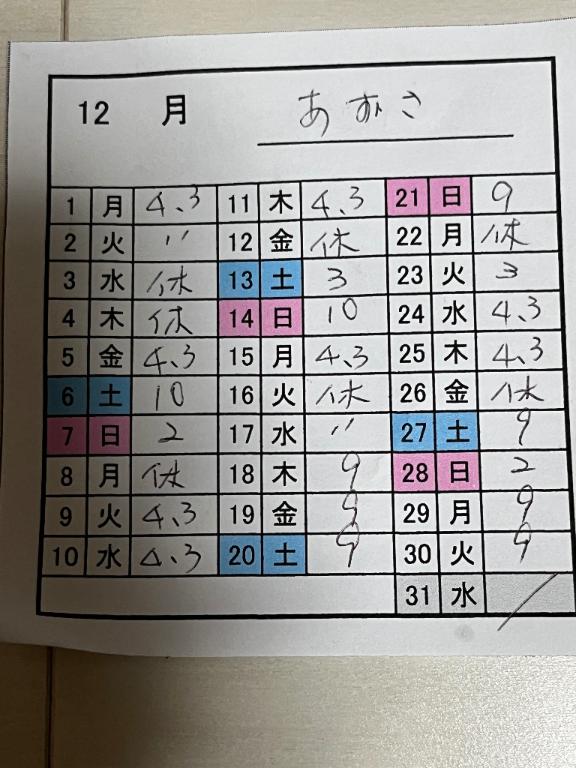 12 月 あずさ
1 月 4.3 11 木 4.3 21 日 9
2 火 〃 12 金 休 22 月 休
3 水 休 13 土 3 23 火 3
4 木 休 14 日 10 24 水 4.3
5 金 4.3 15 月 4.3 25 木 4.3
6 土 10 16 火 休 26 金 休
7 日 2 17 水 〃 27 土 9
8 月 休 18 木 9 28 日 2
9 火 4.3 19 金 9 29 月 9
10 水 4.3 20 土 9 30 火 9
31 水 /